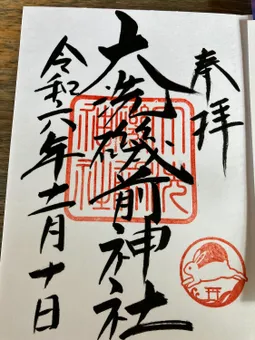 奉拝
大洗磯前神社
令和六年十一月十日